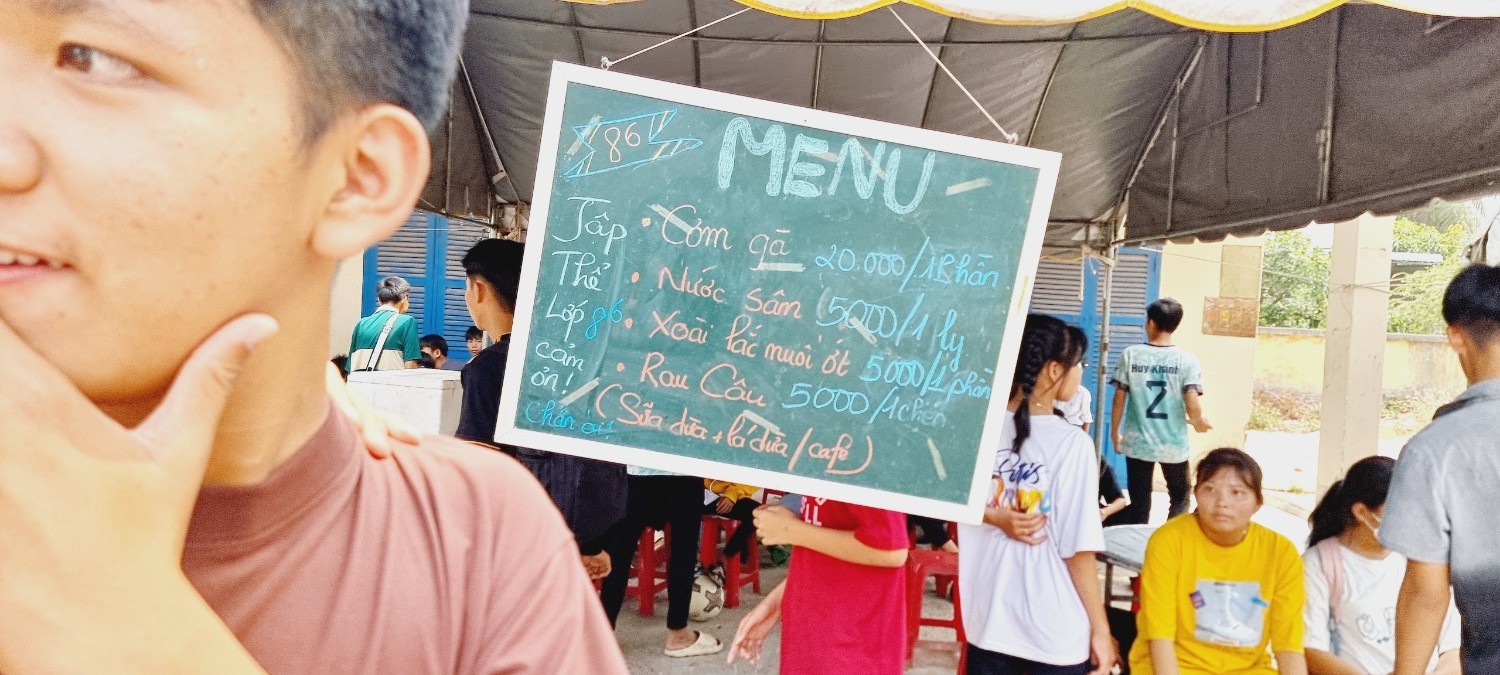 86
MENU
Tập
Thể
Lớp 86
cảm
ơn!
Chân
• Cơm gà 20.000/1 Phần
• Nước sâm 5000/1 ly
• Xoài lắc muối ớt 5000/1 phần
• Rau Câu 5000/1 chén
(Sữa dừa + lá dứa / café)
Huy Khánh
2